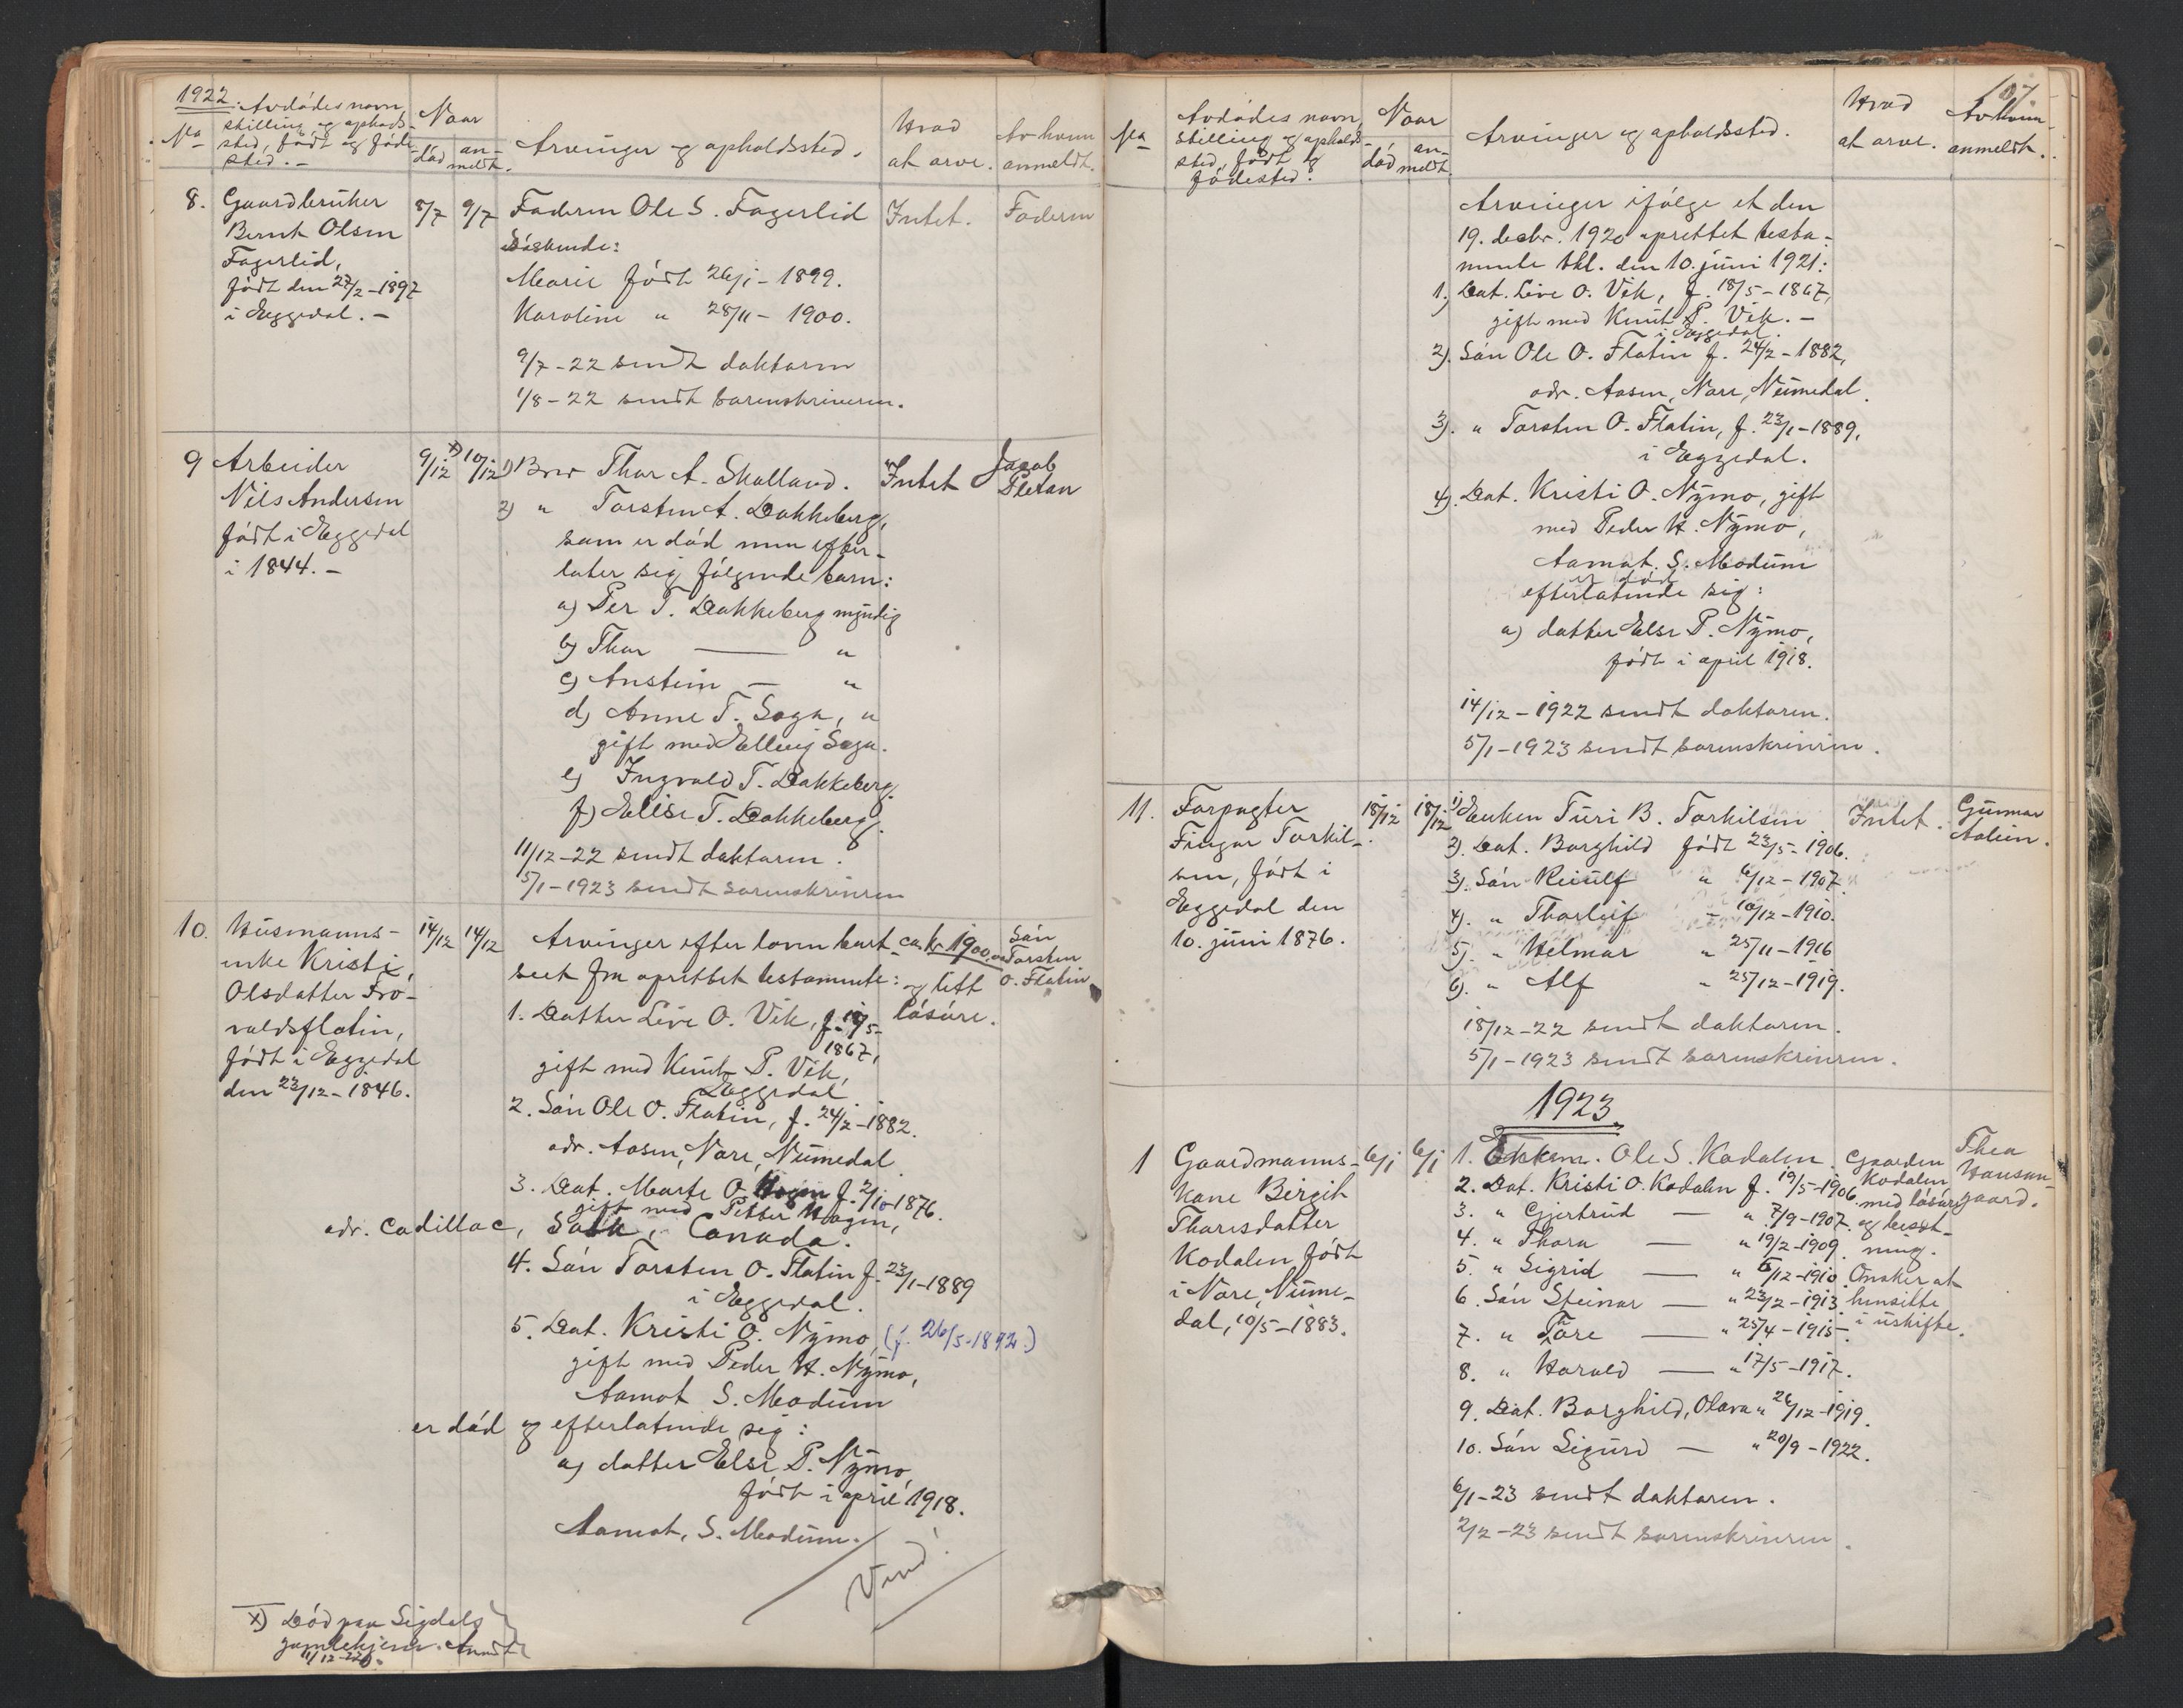 1922.
No
Avdødes navn,
stilling og opholds-
sted, født og føde-
sted. -
Naar
død
an-
meldt.
Arvinger og opholdssted.
Hvad
at arve.
Av hvem
anmeldt.
8.
Gaardbruker
Bernt Olsen
Fagerlid,
født den 27/2-1897
i Eggedal. -
8/7
9/7
Faderen Ole S. Fagerlid
Søskende:
Marie født 26/1 - 1899.
Karoline " 28/11 - 1900.
9/7 - 22 sendt doktoren
1/8 - 22 sendt sorenskriveren.
Intet.
Faderen
9
Arbeider
Nils Andersen
født i Eggedal
i 1844. -
9/12 x)
10/12
1) Bror Thor A. Skalland.
2) " Torsten A. Dokkeberg,
som er død men efter-
later sig følgende barn:
a) Per T. Dokkeberg myndig
b) Thor — "
c) Anstein — "
d) Anne T. Saga, "
gift med Elling Saga.
e) Ingvald T. Dokkeberg.
f) Elise T. Dokkeberg.
11/12-22 sendt doktoren.
5/1-1923 sendt sorenskriveren
Intet
Jacob
Pletan
10.
Husmanns-
enke Kristi
Olsdatter Fro-
valdsflatin,
født i Eggedal
den 23/12-1846.
14/12
14/12
Arvinger efter loven bort-
seet fra oprettet testamente:
1. Datter Live O. Vik, f. 18/5-
1867,
gift med Knut P. Vik,
Eggedal
2. Søn Ole O. Flatin, f. 24/2-1882.
adr. Aasen, Nore, Numedal.
3. Dat. Marte O. Hagen f. 2/10-1876.
gift med Petter Hagen,
adr. Cadillac, Sask, Canada.
4. Søn Torsten O. Flatin f. 23/1-1889
i Eggedal.
5. Dat. Kristi O. Nymo, (f. 26/5-1892.)
gift med Peder H. Nymo,
Aamot S. Modum
er død og efterlatende sig:
a) datter Else P. Nymo,
født i april 1918.
Aamot, S. Modum.
Vend.
ca. kr 1900.00
og litt
løsøre.
Søn
Torsten
O. Flatin
x) Død paa Sigdals
gamlehjem. Anmeldt
11/12-22.
107
No
Avdødes navn,
stilling og opholds-
sted, født og
fødested.
Naar
død
an-
meldt
Arvinger og opholdssted.
Hvad
at arve.
Av hvem
anmeldt.
Arvinger ifølge et den
19. decbr. 1920 oprettet testa-
mente tkl. den 10. juni 1921:
1). Dat. Live O. Vik, f. 18/5-1867,
gift med Knut P. Vik. -
i Eggedal.
2). Søn Ole O. Flatin f. 24/2-1882,
adr. Aasen, Nore, Numedal.
3). " Torsten O. Flatin, f. 23/1-1889,
i Eggedal.
4). Dat. Kristi O. Nymo, gift
med Peder H. Nymo,
Aamot. S. Modum
er død
efterlatende sig:
a) datter Else P. Nymo,
født i april 1918.
14/12 - 1922 sendt doktoren.
5/1-1923 sendt sorenskriveren.
11.
Forpagter
Fingar Torkil-
sen, født i
Eggedal den
10. juni 1876.
18/12.
18/12
1) Enken Turi B. Torkilsen
2). Dat. Borghild født 23/5-1906.
3). Søn Reiulf " 6/12-1907.
4). " Thorleif - 10/12-1910.
5). " Helmar " 25/11-1916
6). " Alf " 25/12-1919.
18/12-22 sendt doktoren.
5/1-1923 sendt sorenskriveren.
Intet.
Gunnar
Aalien.
1923.
1
Gaardmanns-
kone Birgit
Thoresdatter
Kodalen født
i Nore, Nume-
dal, 10/5-1883.
6/1
6/1
1. Ektem. Ole S. Kodalen.
2. Dat. Kristi O. Kodalen f. 19/5-1906.
3. " Gjertrud — " 7/9-1907.
4. " Thora — " 19/2-1909.
5. " Sigrid — " 6/12-1910.
6. Søn Steinar — " 23/2-1913.
7. " Tore — " 25/4-1915.
8. " Harald — " 17/5-1917.
9. Dat. Borghild, Olava " 26/12-1919.
10. Søn Sigurd — " 20/9-1922.
6/1-23 sendt doktoren.
2/2-23 sendt sorenskriveren.
Gaarden
Kodalen
med løsøre
og besæt-
ning.
Ønsker at
hensitte
i uskifte.
Thea
Hansen-
gaard.